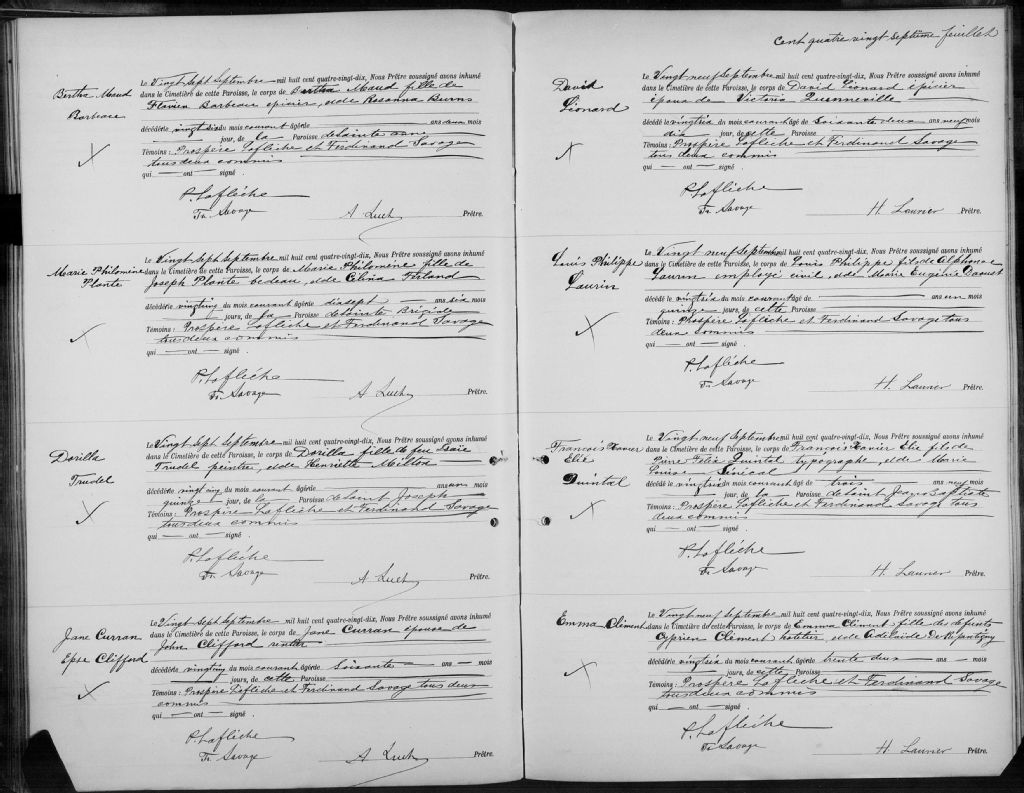 Bertha Maud
Barbeau
Le Vingt Sept Septembre mil huit cent quatre-vingt-dix, Nous Prêtre soussigné avons inhumé
dans le Cimetière de cette Paroisse, le corps de Bertha Maud fille de
Flavien Barbeau épicier, et de Rosanna Burns
décédé le vingtsix du mois courant âgé de ans deux mois
jour, de la Paroisse de Sainte Anne
Témoins : Prospère Laflèche et Ferdinand Savage
tous deux commis
qui — ont — signé .
P. Lafléche
Fd. Savage A Luch Prêtre.
Marie Philomène
Plante
Le Vingt Sept Septembre mil huit cent quatre-vingt-dix, Nous Prêtre soussigné avons inhumé
dans le Cimetière de cette Paroisse, le corps de Marie Philomène fille de
Joseph Plante bedeau, et de Célina
décédé le vingtcinq du mois courant âgé de dixsept ans six mois
jours, de la Paroisse de Sainte Brigide
Témoins : Prospère Laflèche et Ferdinand Savage
tous deux commis
qui — ont — signé .
P. Lafléche
Fd. Savage A Luch Prêtre.
Dorilla
Trudel
Le Vingt Sept Septembre mil huit cent quatre-vingt-dix, Nous Prêtre soussigné avons inhumé
dans le Cimetière de cette Paroisse, le corps de Dorilla fille de feu Isaïe
Trudel peintre, et de Henriette Milton
décédé le vingt cinq du mois courant âgé de ans un mois
jour, de la Paroisse de Saint Joseph
Témoins : Prospère Laflèche et Ferdinand Savage
tous deux commis
qui — ont — signé .
P. Lafléche
Fd. Savage A Luch Prêtre.
Jane Curran
Epse Clifford
Le Vingt Sept Septembre mil huit cent quatre-vingt-dix, Nous Prêtre soussigné avons inhumé
dans le Cimetière de cette Paroisse, le corps de Jane Curran épouse de
John Clifford rentier
décédé le vingtcinq du mois courant âgé de Soixante — ans — mois
jours, de cette Paroisse
Témoins : Prospère Laflèche et Ferdinand Savage tous deux
commis
qui — ont — signé .
P. Lafléche
Fd. Savage A Luch Prêtre.
Cent quatre vingt septième feuillet
David
Léonard
Le Vingt neuf Septembre mil huit cent quatre-vingt-dix, Nous Prêtre soussigné avons inhumé
dans le Cimetière de cette Paroisse, le corps de David Léonard épicier
époux de Victoria Quenneville
décédé le vingtsix du mois courant âgé de Soixante deux ans neuf mois
dix jour, de cette Paroisse
Témoins : Prospère Laflèche et Ferdinand Savage
tous deux commis
qui — ont — signé .
P. Lafléche
Fd. Savage H. Laurier Prêtre.
Louis Philippe
Laurin
Le Vingt neuf Septembre mil huit cent quatre-vingt-dix, Nous Prêtre soussigné avons inhumé
dans le Cimetière de cette Paroisse, le corps de Louis Philippe fil de Alphonse
Laurin employé civil, et de Marie Eugénie Daoust
décédé le vingtsix du mois courant âgé de ans un mois
quinze jours, de cette Paroisse
Témoins : Prospère Laflèche et Ferdinand Savage tous
deux commis
qui — ont — signé .
P. Lafléche
Fd. Savage H. Laurier Prêtre.
François Xavier
Elie
Quintal
Le Vingt neuf Septembre mil huit cent quatre-vingt-dix, Nous Prêtre soussigné avons inhumé
dans le Cimetière de cette Paroisse, le corps de François Xavier Elie fils de
Pierre Félix Quintal typographe, et de Marie
Louise Sénécal
décédé le vingtsix du mois courant âgé de trois ans neuf mois
jour, de la Paroisse de Saint Jean Baptiste
Témoins : Prospère Laflèche et Ferdinand Savage tous
deux commis
qui — ont — signé .
P. Lafléche
Fd. Savage H. Laurier Prêtre.
Emma Clément
Le Vingt neuf Septembre mil huit cent quatre-vingt-dix, Nous Prêtre soussigné avons inhumé
dans le Cimetière de cette Paroisse, le corps de Emma Clément fille des défunts
Cyprien Clément hotelier, et de Adelaïde De Répentigny
décédé le vingtsix du mois courant âgé de trente deux ans — mois
jours, de cette Paroisse
Témoins : Prospère Laflèche et Ferdinand Savage
tous deux commis
qui — ont — signé .
P. Lafléche
Fd. Savage H. Laurier Prêtre.